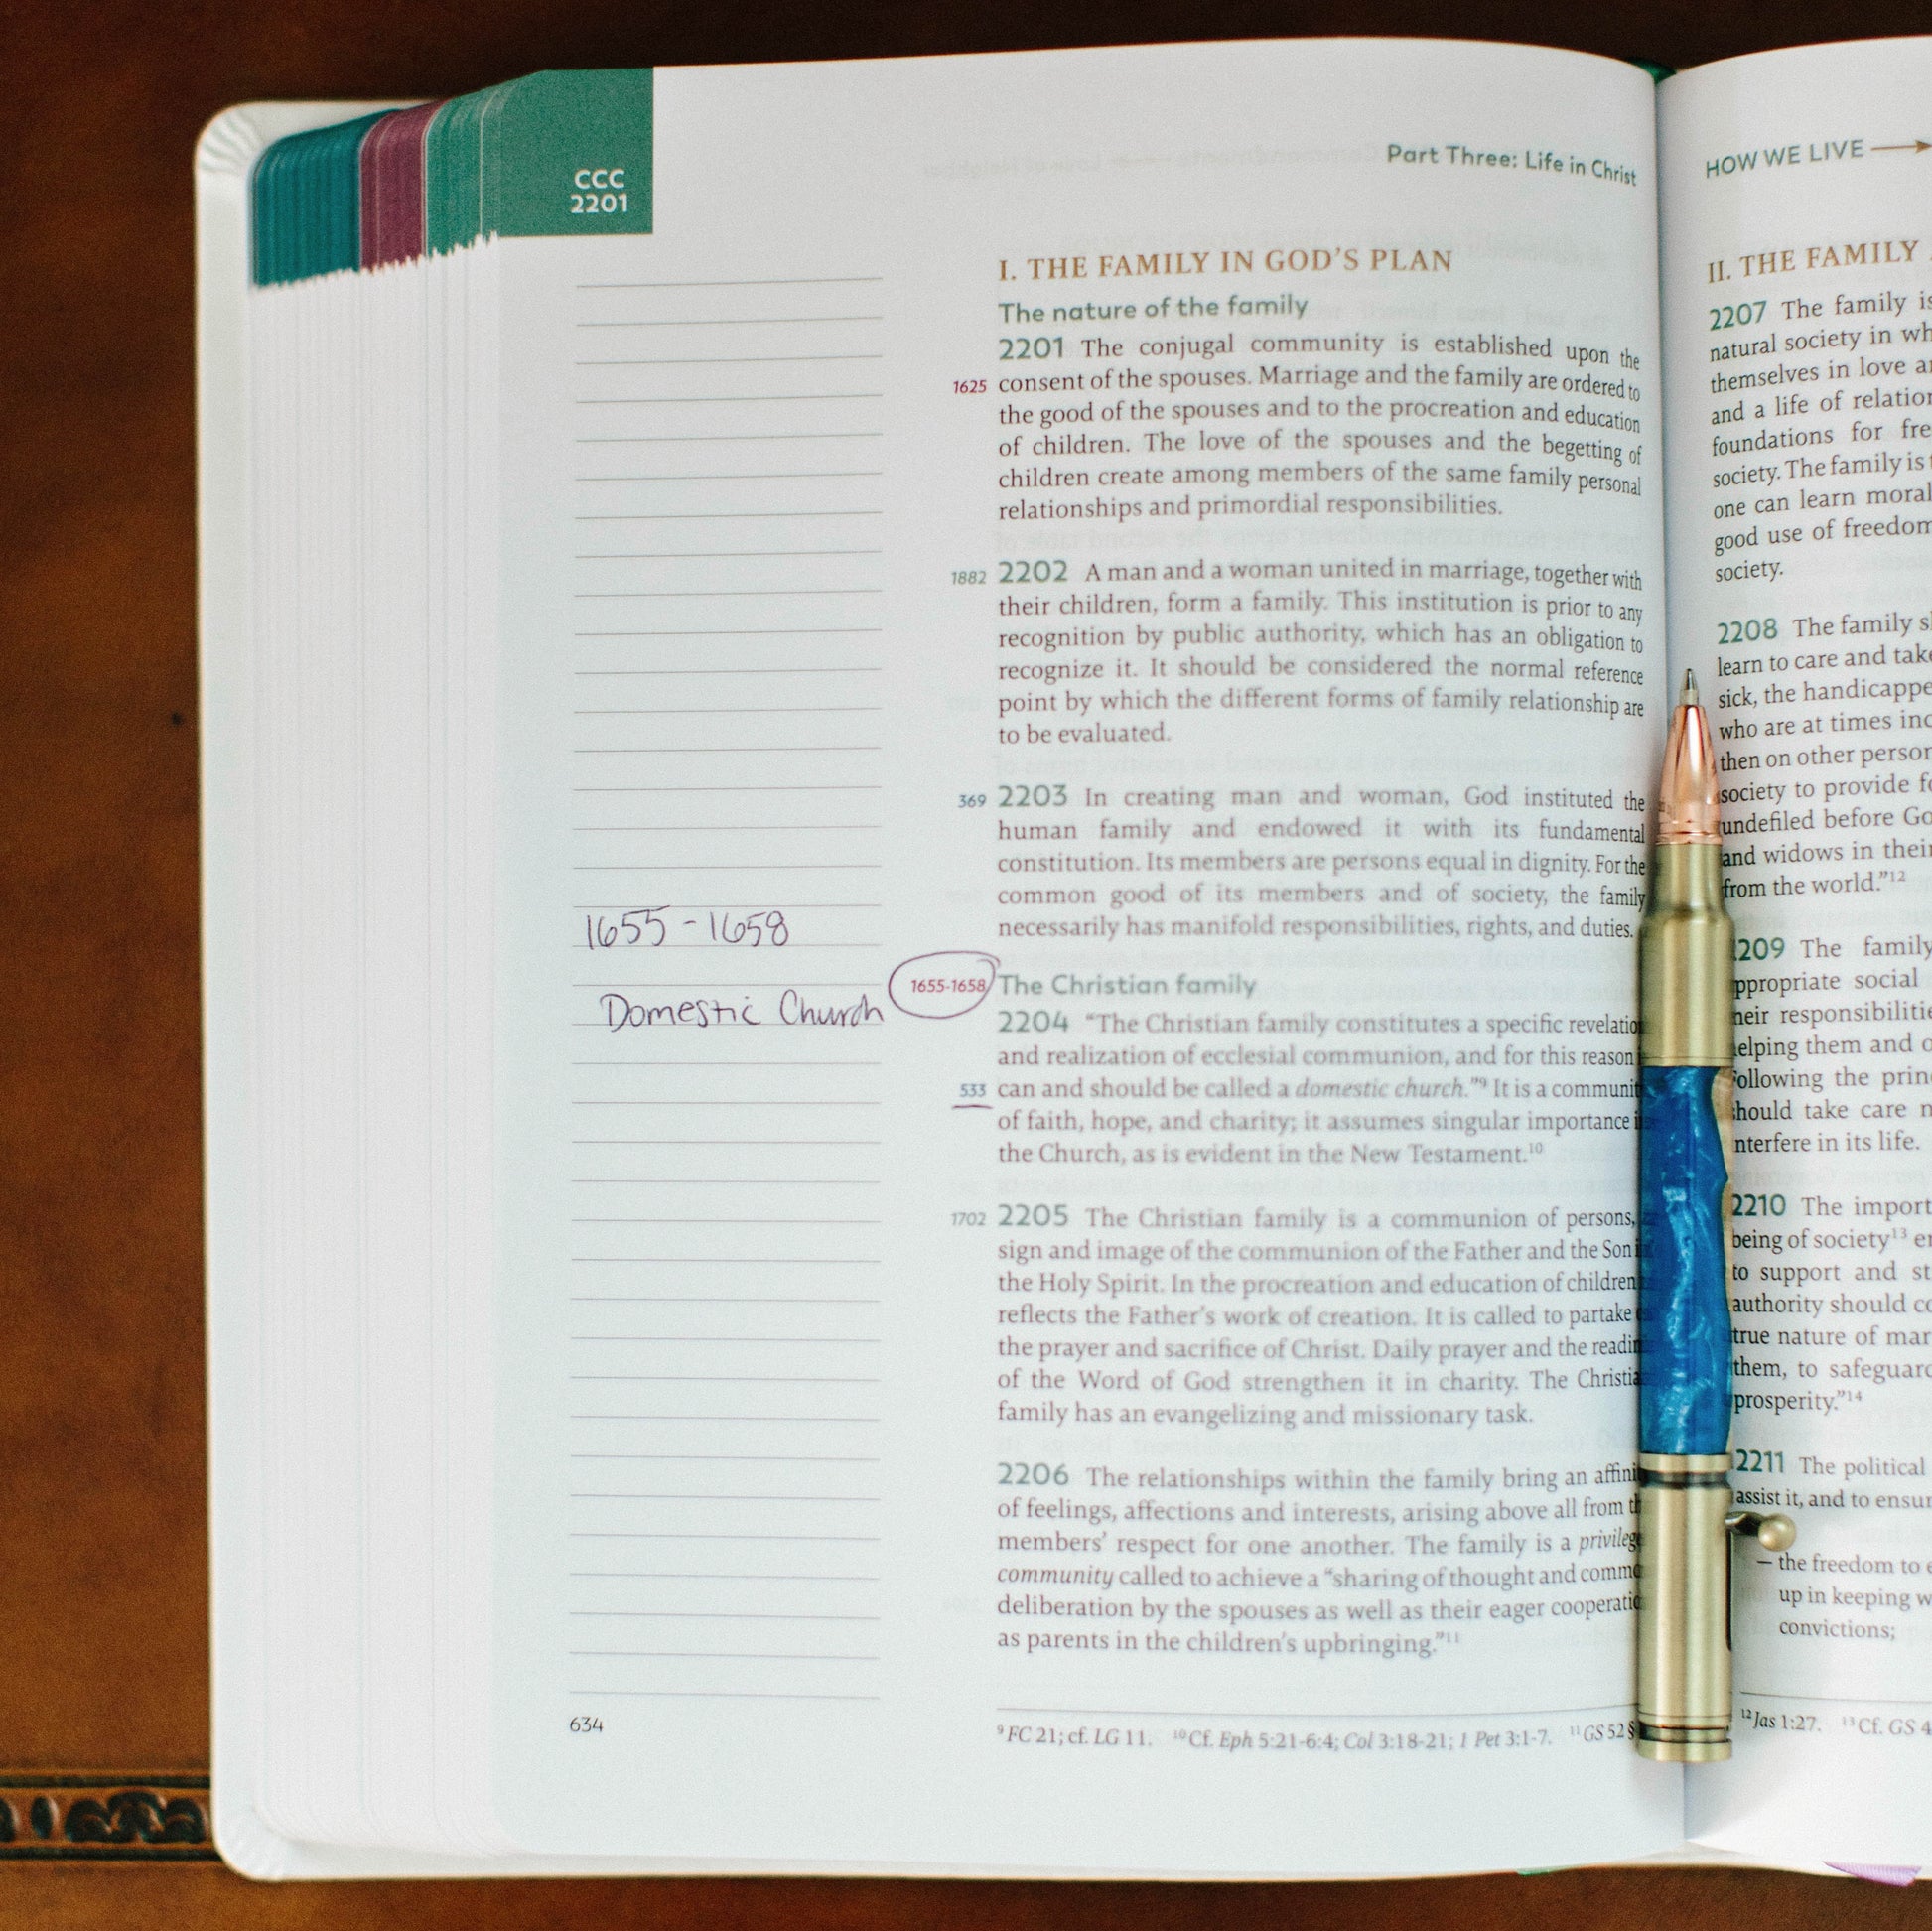 CCC
2201
Part Three: Life in Christ
I. THE FAMILY IN GOD'S PLAN
The nature of the family
2201 The conjugal community is established upon the
1625 consent of the spouses. Marriage and the family are ordered to
the good of the spouses and to the procreation and education
of children. The love of the spouses and the begetting of
children create among members of the same family personal
relationships and primordial responsibilities.
1882 2202 A man and a woman united in marriage, together with
their children, form a family. This institution is prior to any
recognition by public authority, which has an obligation to
recognize it. It should be considered the normal reference
point by which the different forms of family relationship are
to be evaluated.
369 2203 In creating man and woman, God instituted the
human family and endowed it with its fundamental
constitution. Its members are persons equal in dignity. For the
common good of its members and of society, the family
necessarily has manifold responsibilities, rights, and duties.
1655 - 1658
Domestic Church
1655-1658 The Christian family
2204 “The Christian family constitutes a specific
and realization of ecclesial communion, and for this reason
533 can and should be called a domestic church.”9 It is a
of faith, hope, and charity; it assumes singular importance
the Church, as is evident in the New Testament.10
1702 2205 The Christian family is a communion of persons,
sign and image of the communion of the Father and the Son
the Holy Spirit. In the procreation and education of children
reflects the Father's work of creation. It is called to partake
the prayer and sacrifice of Christ. Daily prayer and the
of the Word of God strengthen it in charity. The
family has an evangelizing and missionary task.
2206 The relationships within the family bring an
of feelings, affections and interests, arising above all from
members' respect for one another. The family is a
community called to achieve a “sharing of thought and
deliberation by the spouses as well as their eager
as parents in the children's upbringing.”11
9 FC 21; cf. LG 11. 10 Cf. Eph 5:21-6:4; Col 3:18-21; 1 Pet 3:1-7. 11 GS 52 §
634
HOW WE LIVE
II. THE FAMILY
2207 The family is
natural society in
themselves in love
and a life of
foundations for
society. The family is
one can learn
good use of
society.
2208 The family
learn to care and
sick, the
who are at times
then on other
society to provide
undefiled before
and widows in
from the world.”12
The family
social
helping them and
Following the
should take care
interfere in its life.
2210 The
being of society13
to support and
authority should
true nature of
them, to
prosperity.”14
2211 The political
assist it, and to
– the freedom to
up in keeping
convictions;
12 Jas 1:27. 13 Cf. GS